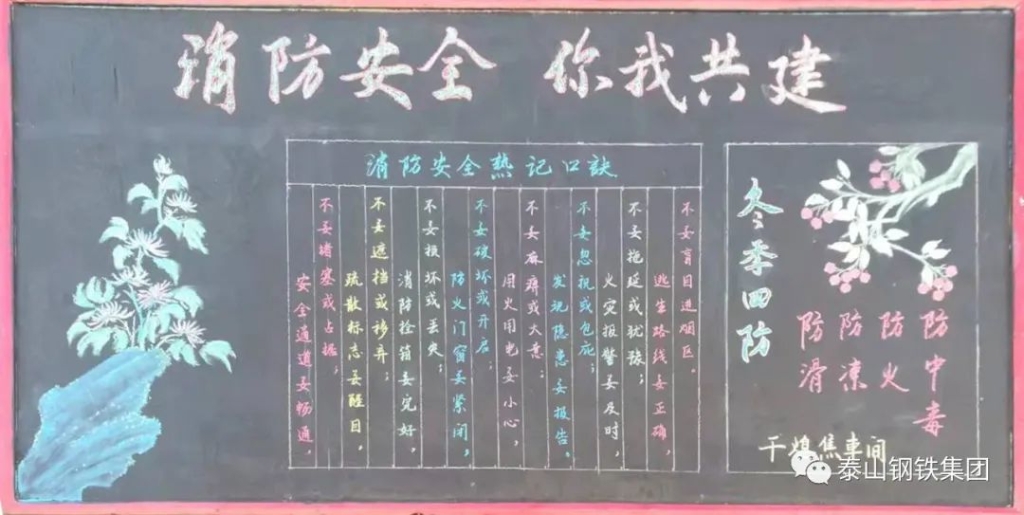 消防安全 你我共建
消防安全熟记口诀
安全通道要畅通，
不要堵塞或占据；
疏散标志要醒目，
不要遮挡或移弃；
消防拴销要完好，
不要损坏或丢失；
防火门窗要紧闭，
不要破坏或开启；
用火用电要小心，
不要麻痹或大意；
发现隐患要报告，
不要忽视或包庇；
火灾报警要及时，
不要拖延或犹豫；
逃生路线要正确，
不要盲目进烟区。
冬季四防
防滑
防冻
防火
防中毒
干熄焦车间
泰山钢铁集团